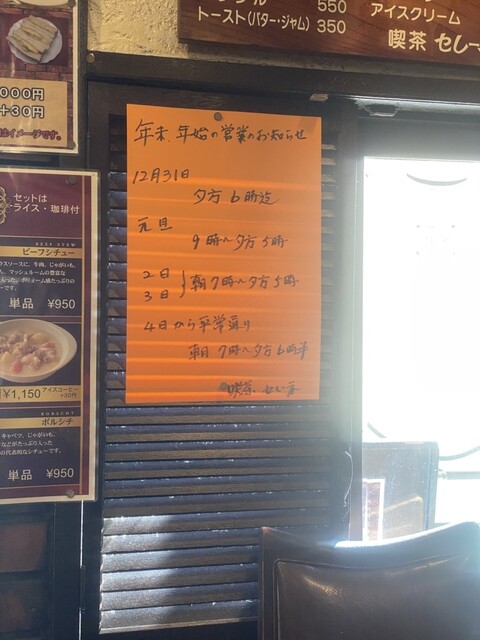 550
トースト(バター・ジャム) 350
アイスクリーム
喫茶 セレ
000円
+30円
はイメージです。
年末、年始の営業のお知らせ
12月31日
夕方6時迄
元旦
9時〜夕方5時
2日
3日
朝7時〜夕方5時
4日から平常通り
朝7時〜夕方6時半
喫茶
セットは
ライス・珈琲付
BEEF STEW
ビーフシチュー
単品 ¥950
¥1,150
アイスコーヒー
+30円
BORSCHT
ボルシチ
キャベツ、じゃがいも、
などがたっぷり入った
の代表的なシチューです。
単品 ¥950